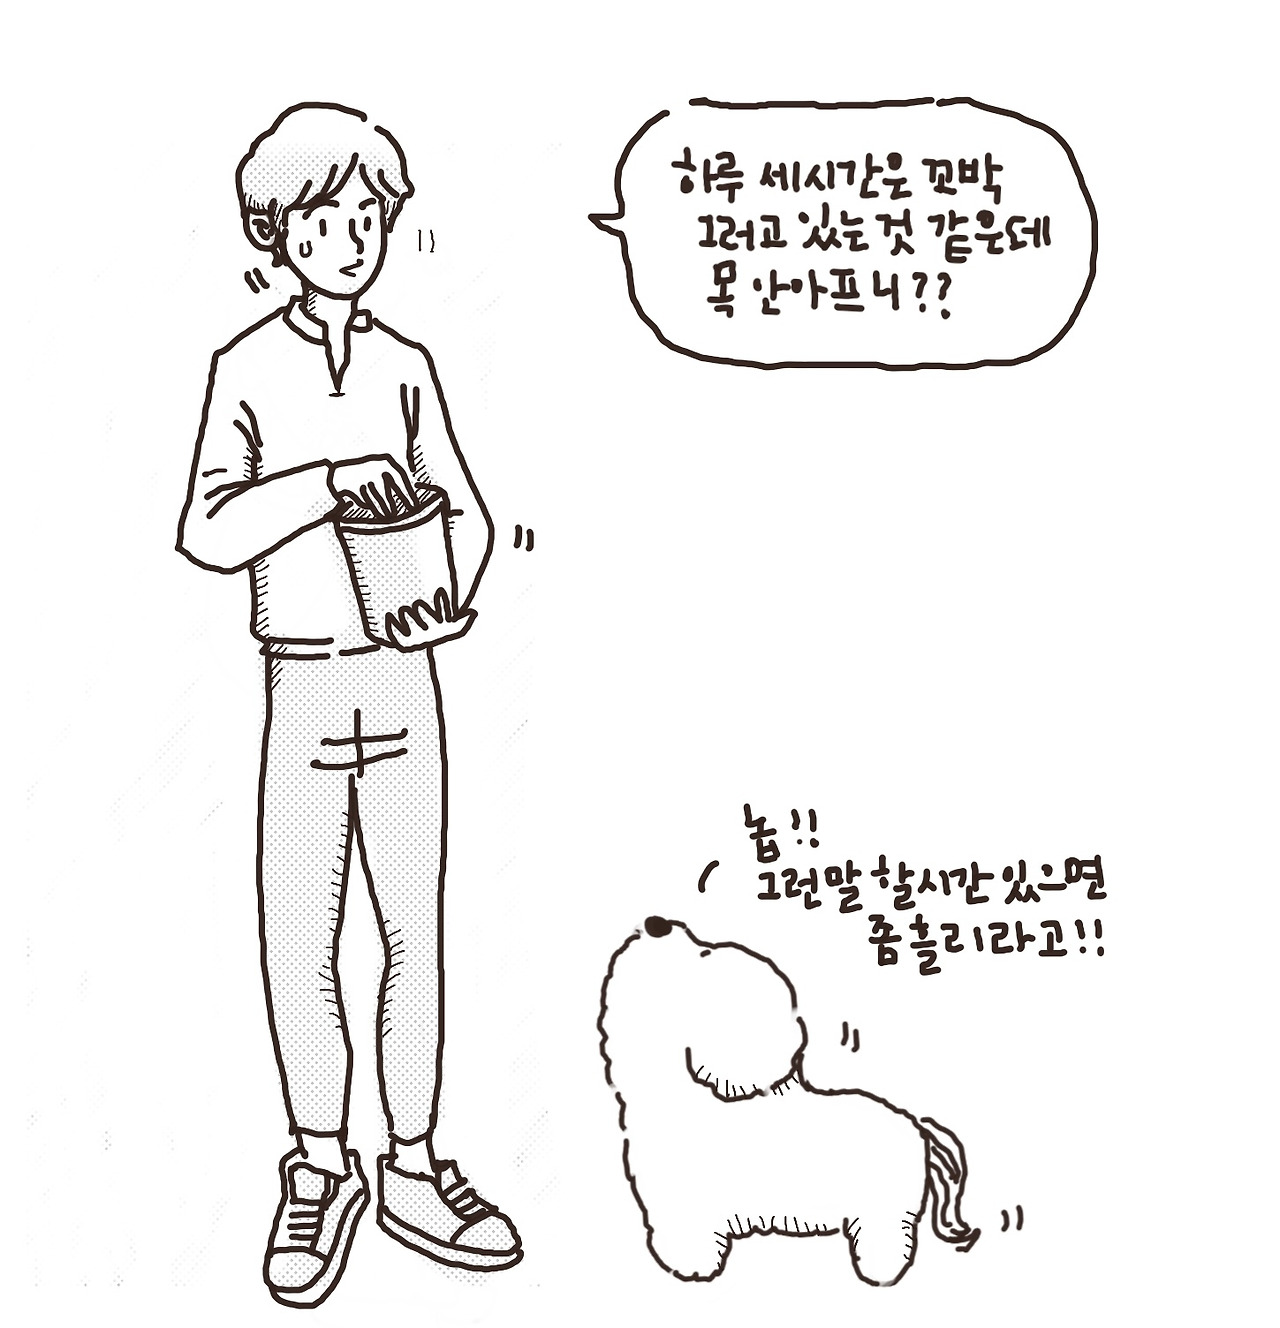 하루 세시간은 꼬박
그러고 있는 것 같은데
목 안아프니??
놉!!
그런말 할시간 있으면
좀 흘리라고!!